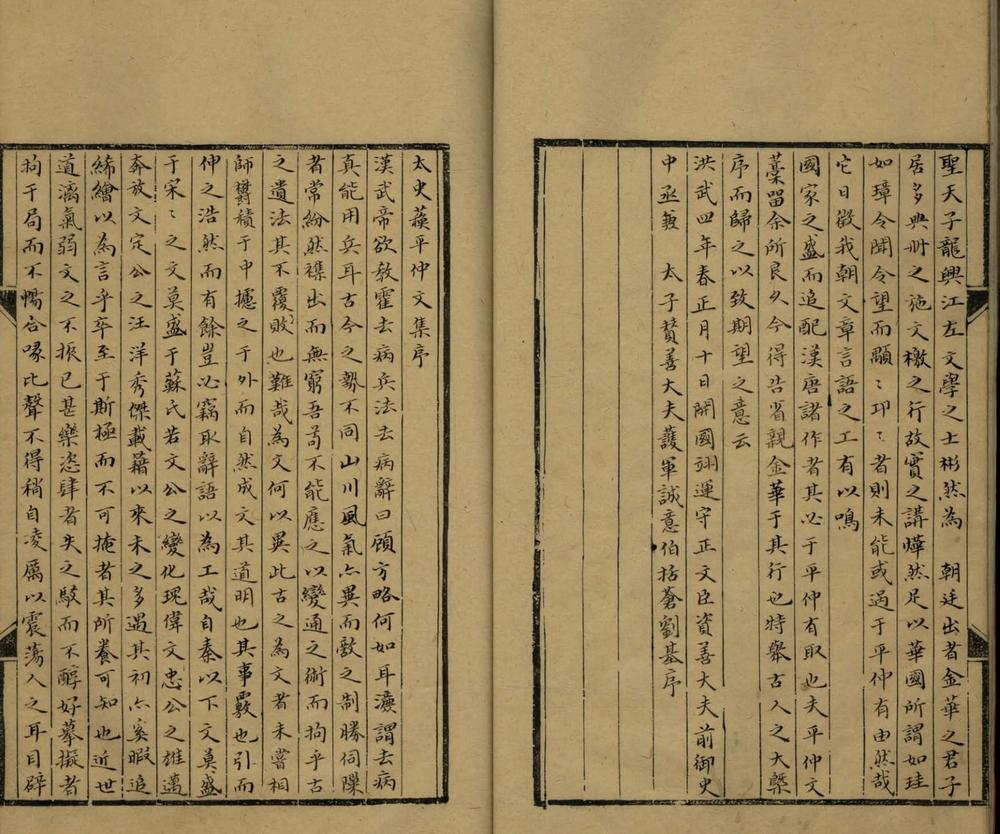 聖天子龍興江左文學之士彬然為　朝廷出者金華之君子
居多典冊之施文檄之行故實之講燁然足以華國所謂如珪
如璋令聞令望而顒〻卭〻者則未能或過于平仲有由然哉
它日徵我朝文章言語之工有以鳴
國家之盛而追配漢唐諸作者其必于平仲有取也夫平仲文
藁畱余所良久今得告省親金華于其行也特舉古人之大槩
序而歸之以致期望之意云
洪武四年春正月十日開國翊運守正文臣資善大夫前御史
中丞兼　太子贊善大夫護軍誠意伯括蒼劉基序
太史蘓平仲文集序
漢武帝欲敎霍去病兵法去病辭曰顧方略何如耳濂謂去病
真能用兵耳古今之勢不同山川風氣亦異而敵之制勝伺隙
者常紛然襍出而無窮吾苟不能應之以變通之術而拘乎古
之遺法其不覆敗也難哉為文何以異此古之為文者未嘗相
師欝積于中攄之于外而自然成文其道明也其事覈也引而
伸之浩然而有餘豈必竊取辭語以為工哉自秦以下文莫盛
于宋〻之文莫盛于蘇氏若文公之變化瑰偉文忠公之雄邁
奔放文定公之汪洋秀傑載藉以來未之多遇其初亦奚暇追
絺繪以為言乎卒至于斯極而不可掩者其所養可知也近世
道漓氣弱文之不振已甚樂恣肆者失之駁而不醇好摹擬者
拘于局而不暢合喙比聲不得稍自凌厲以震蕩人之耳目辟